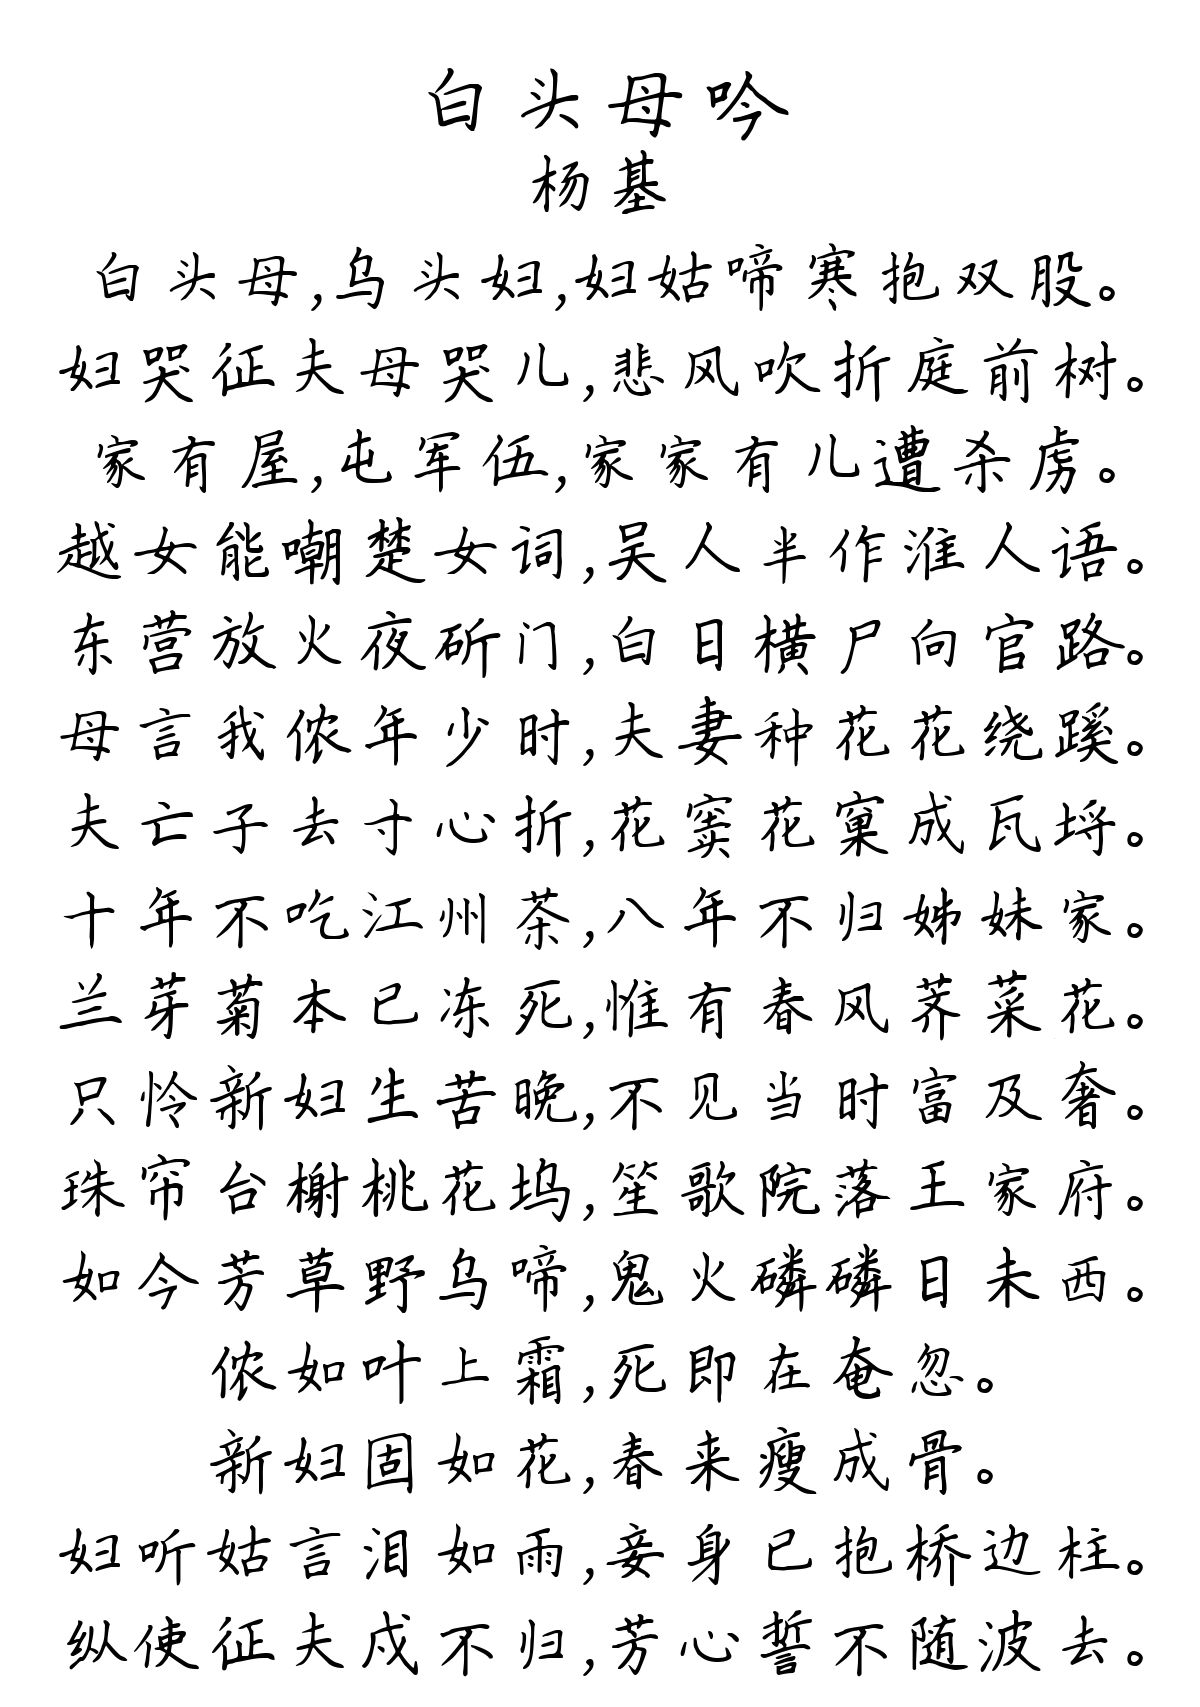 白头母吟
杨基
白头母,乌头妇,妇姑啼寒抱双股。
妇哭征夫母哭儿,悲风吹折庭前树。
家有屋,屯军伍,家家有儿遭杀虏。
越女能嘲楚女词,吴人半作淮人语。
东营放火夜斫门,白日横尸向官路。
母言我侬年少时,夫妻种花花绕蹊。
夫亡子去寸心折,花窦花窠成瓦埒。
十年不吃江州茶,八年不归姊妹家。
兰芽菊本已冻死,惟有春风荠菜花。
只怜新妇生苦晚,不见当时富及奢。
珠帘台榭桃花坞,笙歌院落王家府。
如今芳草野乌啼,鬼火磷磷日未西。
侬如叶上霜,死即在奄忽。
新妇固如花,春来瘦成骨。
妇听姑言泪如雨,妾身已抱桥边柱。
纵使征夫戍不归,芳心誓不随波去。